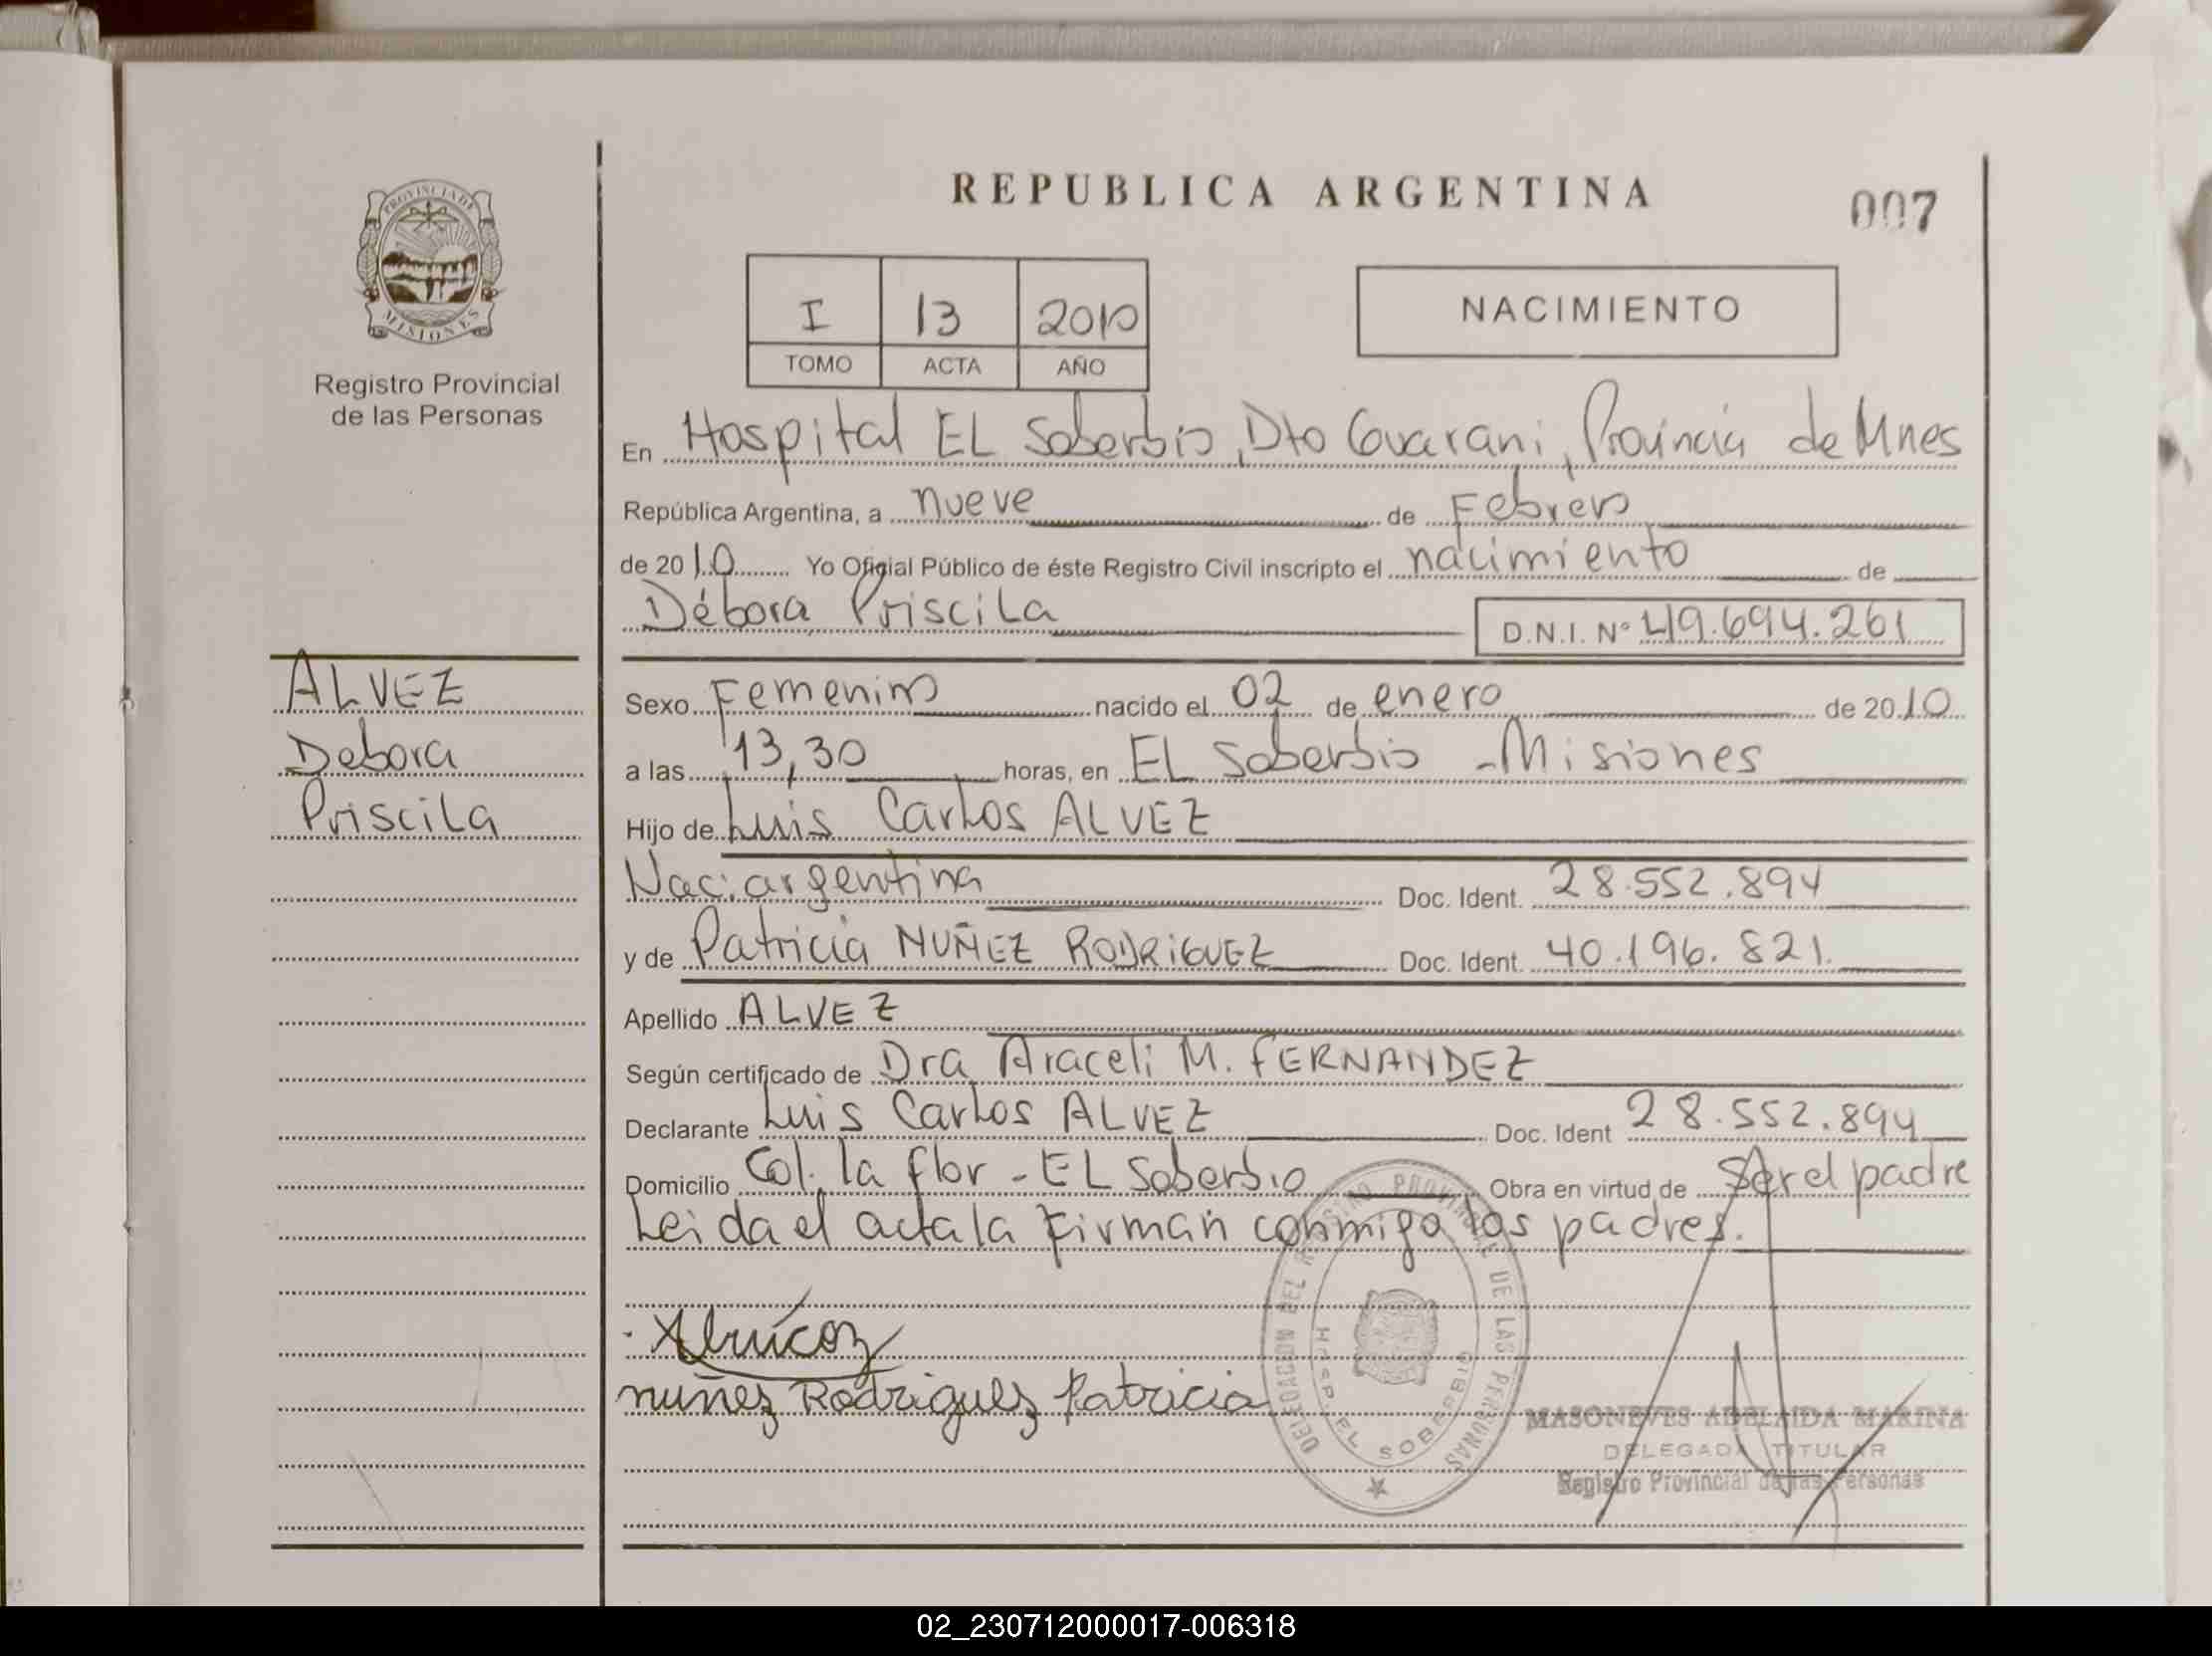 REPUBLICA ARGENTINA
007
PROVINCIA DE
MISIONES
Registro Provincial
de las Personas
I 13 2010
TOMO ACTA AÑO
NACIMIENTO
En Hospital EL Soberbio, Dto Guarani, Provincia de Mnes
República Argentina, a nueve de Febrero
de 2010 Yo Oficial Público de éste Registro Civil inscripto el nacimiento de
Débora Priscila
D.N.I. Nº 49.694.261
ALVEZ
Debora
Priscila
Sexo Femenino nacido el 02 de enero de 2010
a las 13,30 horas, en EL Soberbio - Misiones
Hijo de Luis Carlos ALVEZ
Nac. argentina Doc. Ident. 28.552.894
y de Patricia NUÑEZ RODRIGUEZ Doc. Ident. 40.196.821.
Apellido ALVEZ
Según certificado de Dra Araceli M. FERNANDEZ
Declarante Luis Carlos ALVEZ Doc. Ident 28.552.894
Domicilio Col. la flor - EL Soberbio Obra en virtud de Ser el padre
Leida el acta la Firman conmigo los padres.
nuñez Rodriguez Patricia
DELEGACION DEL REGISTRO PROVINCIAL DE LAS PERSONAS
HOSP. EL SOBERBIO
MASONEVES ADELAIDA MARINA
DELEGADA TITULAR
Registro Provincial de las Personas
02_230712000017-006318